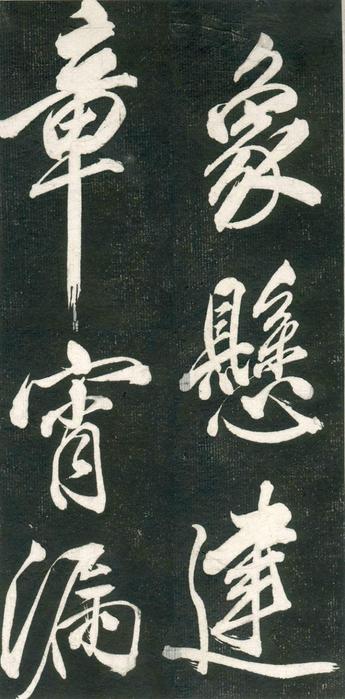 象懸建
章宵漏